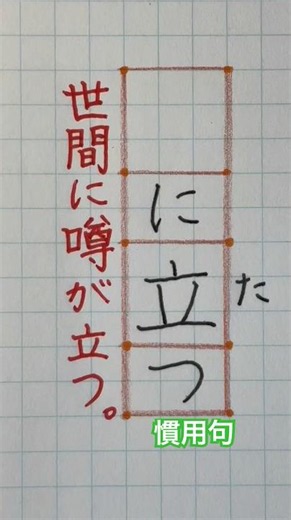 に立つ
た
世間に噂が立つ。
慣用句